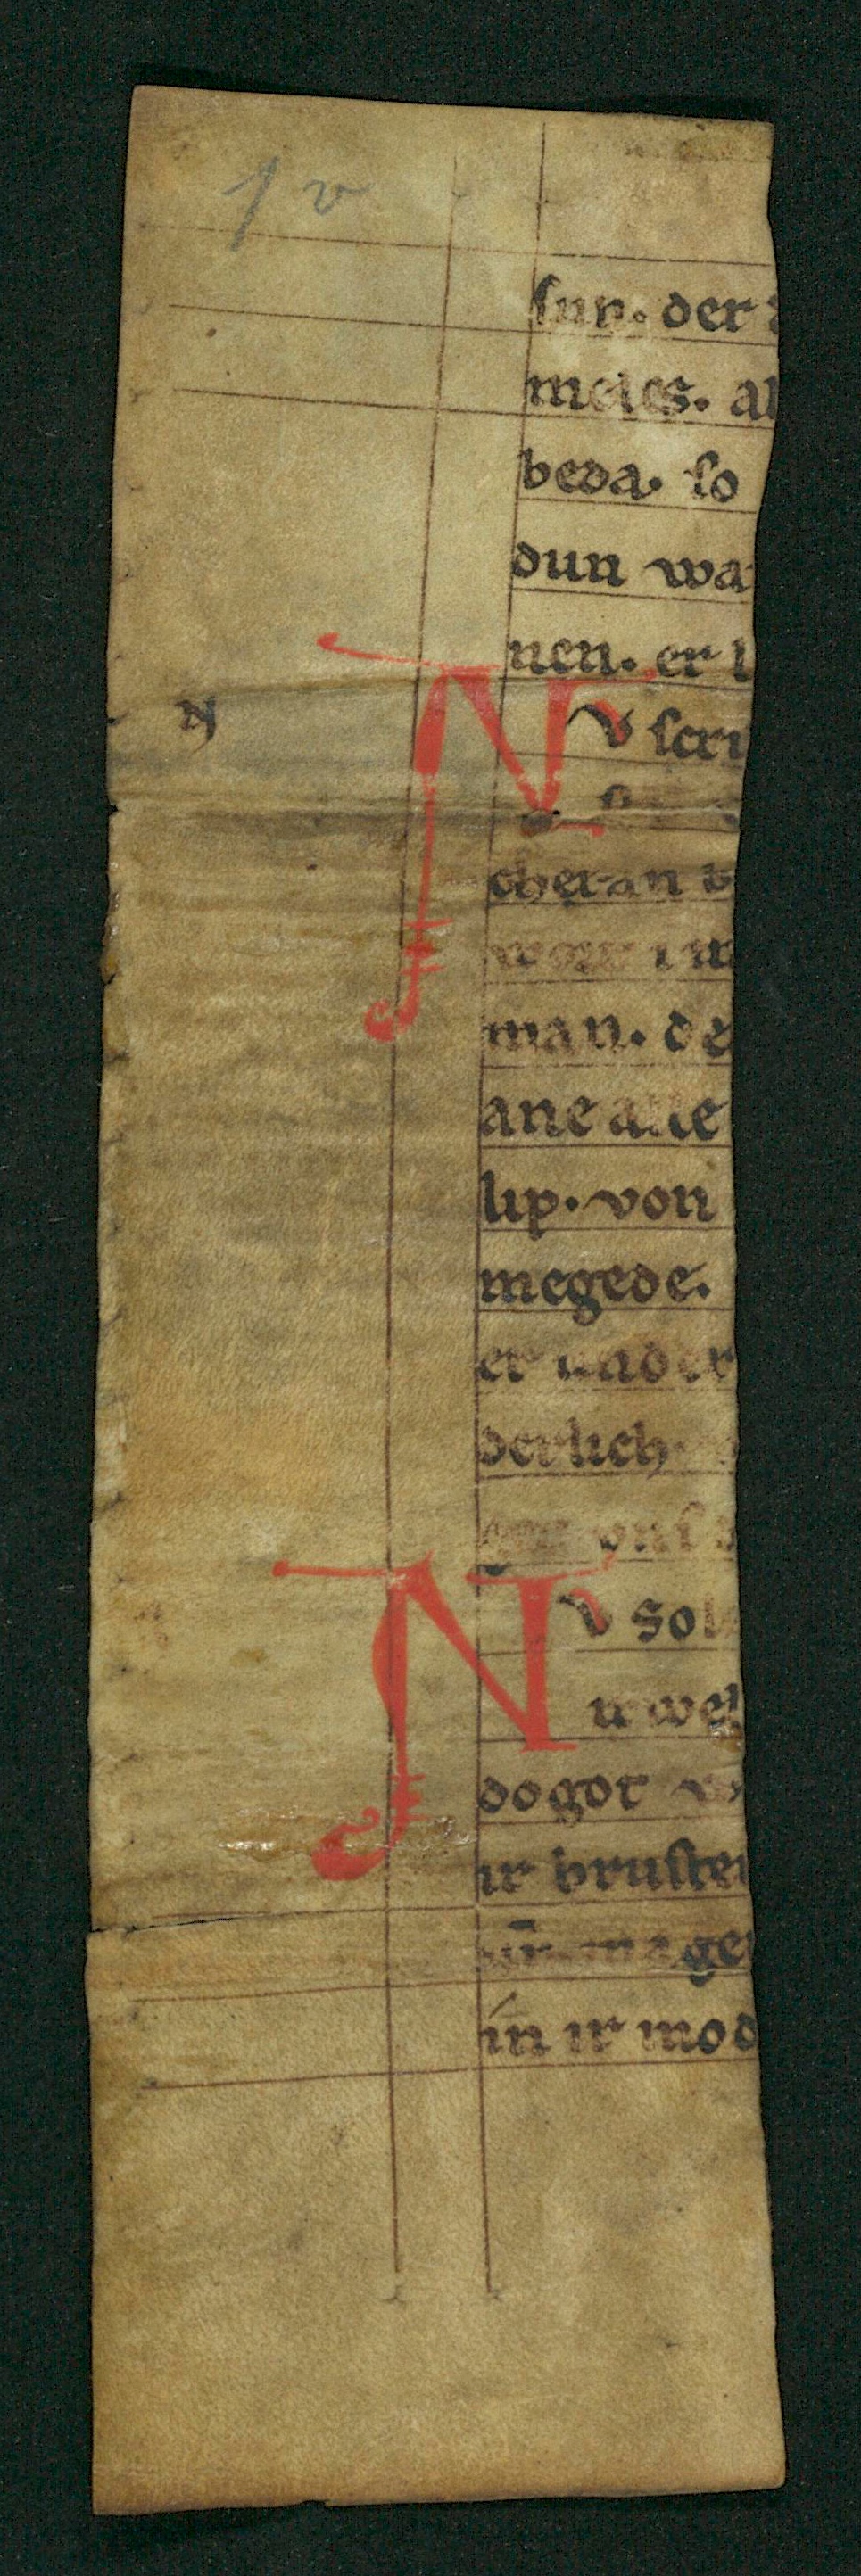 1 v
sun. der
meles. al
beda. so
dun wa
nen. er i
N
NV scri
cheran b
man. de
ane alle
lip. von
megede.
er
derlich
NV sol
ir wel
do got
ir bruste
mage
in ir mod